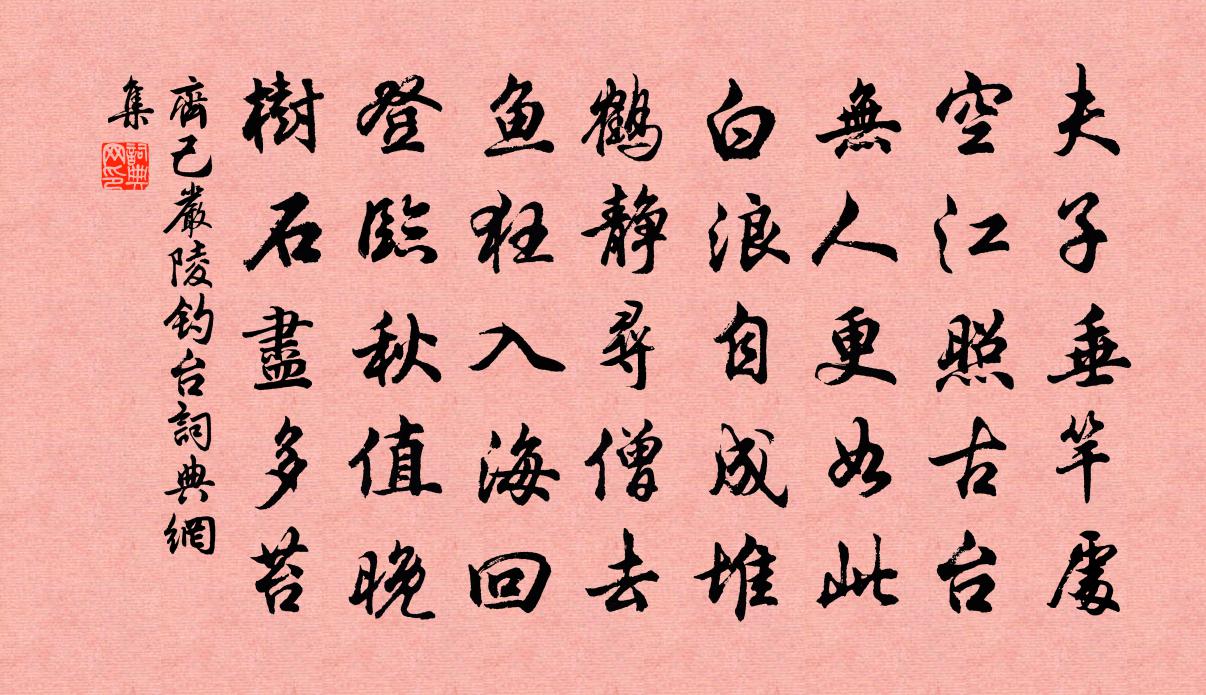 夫子垂竿處
空江照古台
無人更如此
白浪自成堆
鶴静尋僧去
鱼狂入海回
登臨秋值晚
樹石盡多苔
齊己嚴陵钓台詞典網
集
詞典
网印